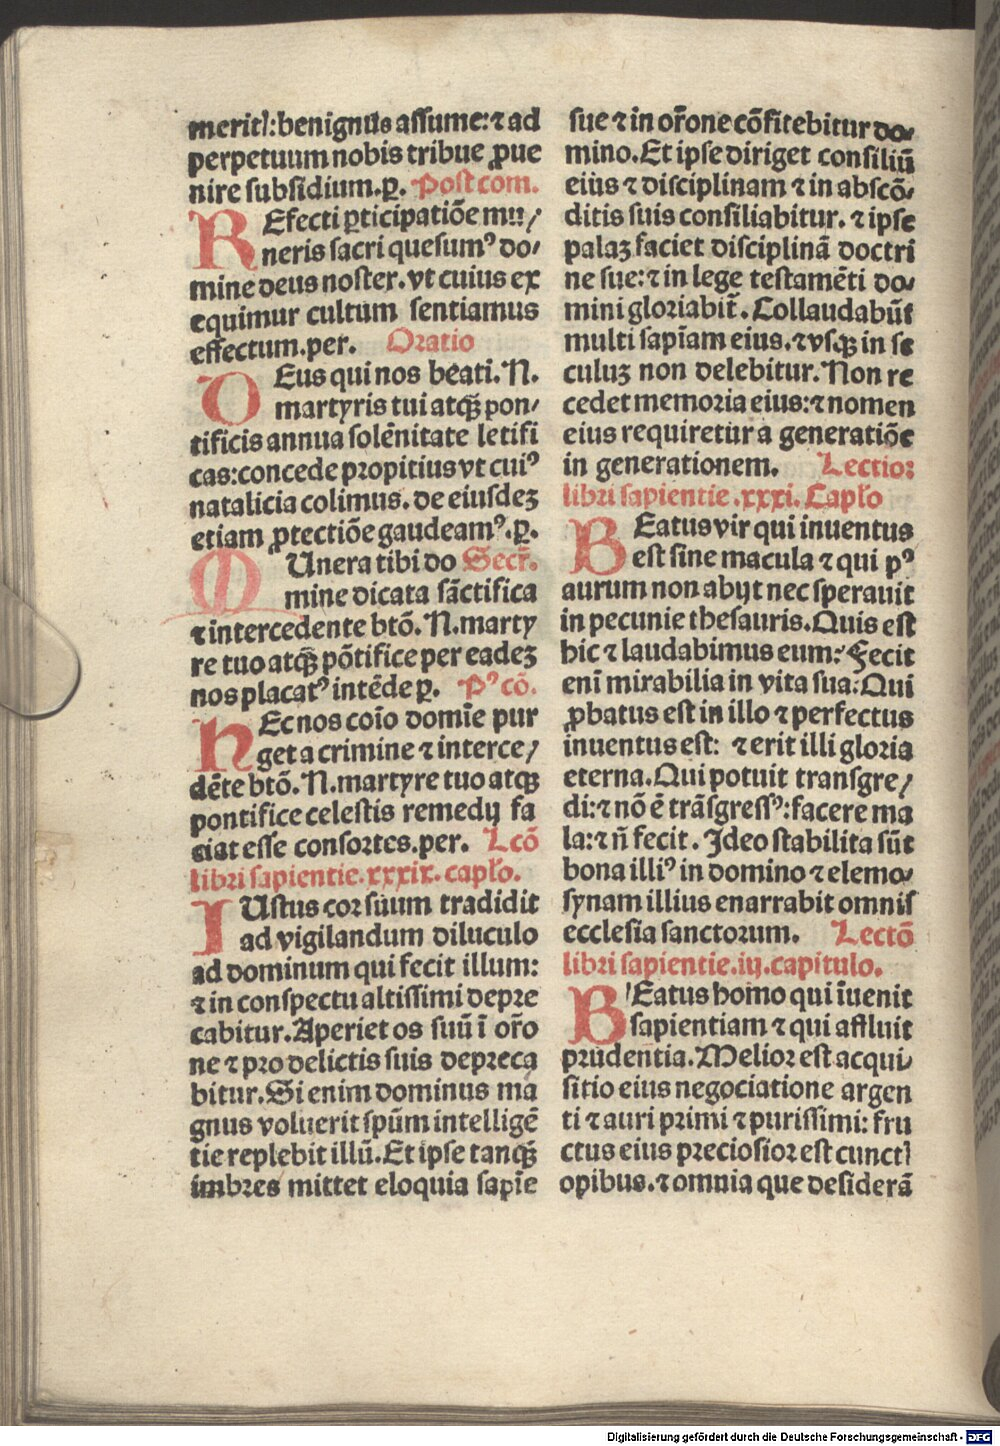 meritꝭ: benignus assume: ⁊ ad
perpetuum nobis tribue ꝓue
nire subsidium.ꝑ. Post com.
REfecti ꝑticipatiõe mu/
neris sacri quesumꝰ do/
mine deus noster. vt cuius ex
equimur cultum sentiamus
effectum.per. Oratio
DEus qui nos beati. N.
martyris tui atqꝫ pon/
tificis annua solẽnitate letifi
cas: concede propitius vt cuiꝰ
natalicia colimus. de eiusdeꝫ
etiam ꝓtectiõe gaudeamꝰ.ꝑ.
MUnera tibi do Secr̃.
mine dicata sãctifica
⁊ intercedente btõ. N. marty
re tuo atqꝫ põtifice per eadeꝫ
nos placatꝰ intẽde ꝑ. Pꝰ cõ.
HEc nos coĩo domĩe pur
get a crimine ⁊ interce/
dẽte btõ. N. martyre tuo atqꝫ
pontifice celestis remedij fa
ciat esse consortes.per. Lcõ
libri sapientie.xxxix. capło.
IUstus cor suum tradidit
ad vigilandum diluculo
ad dominum qui fecit illum:
⁊ in conspectu altissimi depre
cabitur. Aperiet os suũ ĩ or̃o
ne ⁊ pro delictis suis depreca
bitur. Si enim dominus ma
gnus voluerit spũm intelligẽ
tie replebit illũ. Et ipse tanqꝫ
imbres mittet eloquia sapĩe
sue ⁊ in or̃one cõfitebitur do/
mino. Et ipse diriget consiliũ
eius ⁊ disciplinam ⁊ in abscõ/
ditis suis consiliabitur. ⁊ ipse
palaꝫ faciet disciplinã doctri
ne sue: ⁊ in lege testamẽti do/
mini gloriabit̃. Collaudabũt
multi sapĩam eius. ⁊ vsqꝫ in se
culuꝫ non delebitur. Non re
cedet memoria eius: ⁊ nomen
eius requiretur a generatiõe
in generationem. Lectio:
libri sapientie .xxxi. Capło
BEatus vir qui inuentus
est sine macula ⁊ qui pꝰ
aurum non abijt nec sperauit
in pecunie thesauris. Quis est
hic ⁊ laudabimus eum: Fecit
enĩ mirabilia in vita sua: Qui
ꝓbatus est in illo ⁊ perfectus
inuentus est: ⁊ erit illi gloria
eterna. Qui potuit transgre/
di: ⁊ nõ ẽ trãsgressꝰ: facere ma
la: ⁊ ñ fecit. Ideo stabilita sũt
bona illiꝰ in domino ⁊ elemo/
synam illius enarrabit omnis
ecclesia sanctorum. Lectõ
libri sapientie.iij.capitulo.
BEatus homo qui ĩuenit
sapientiam ⁊ qui affluit
prudentia. Melior est acqui/
sitio eius negociatione argen
ti ⁊ auri primi ⁊ purissimi: fru
ctus eius preciosior est cunctꝭ
opibus. ⁊ omnia que desiderã
Digitalisierung gefördert durch die Deutsche Forschungsgemeinschaft - DFG